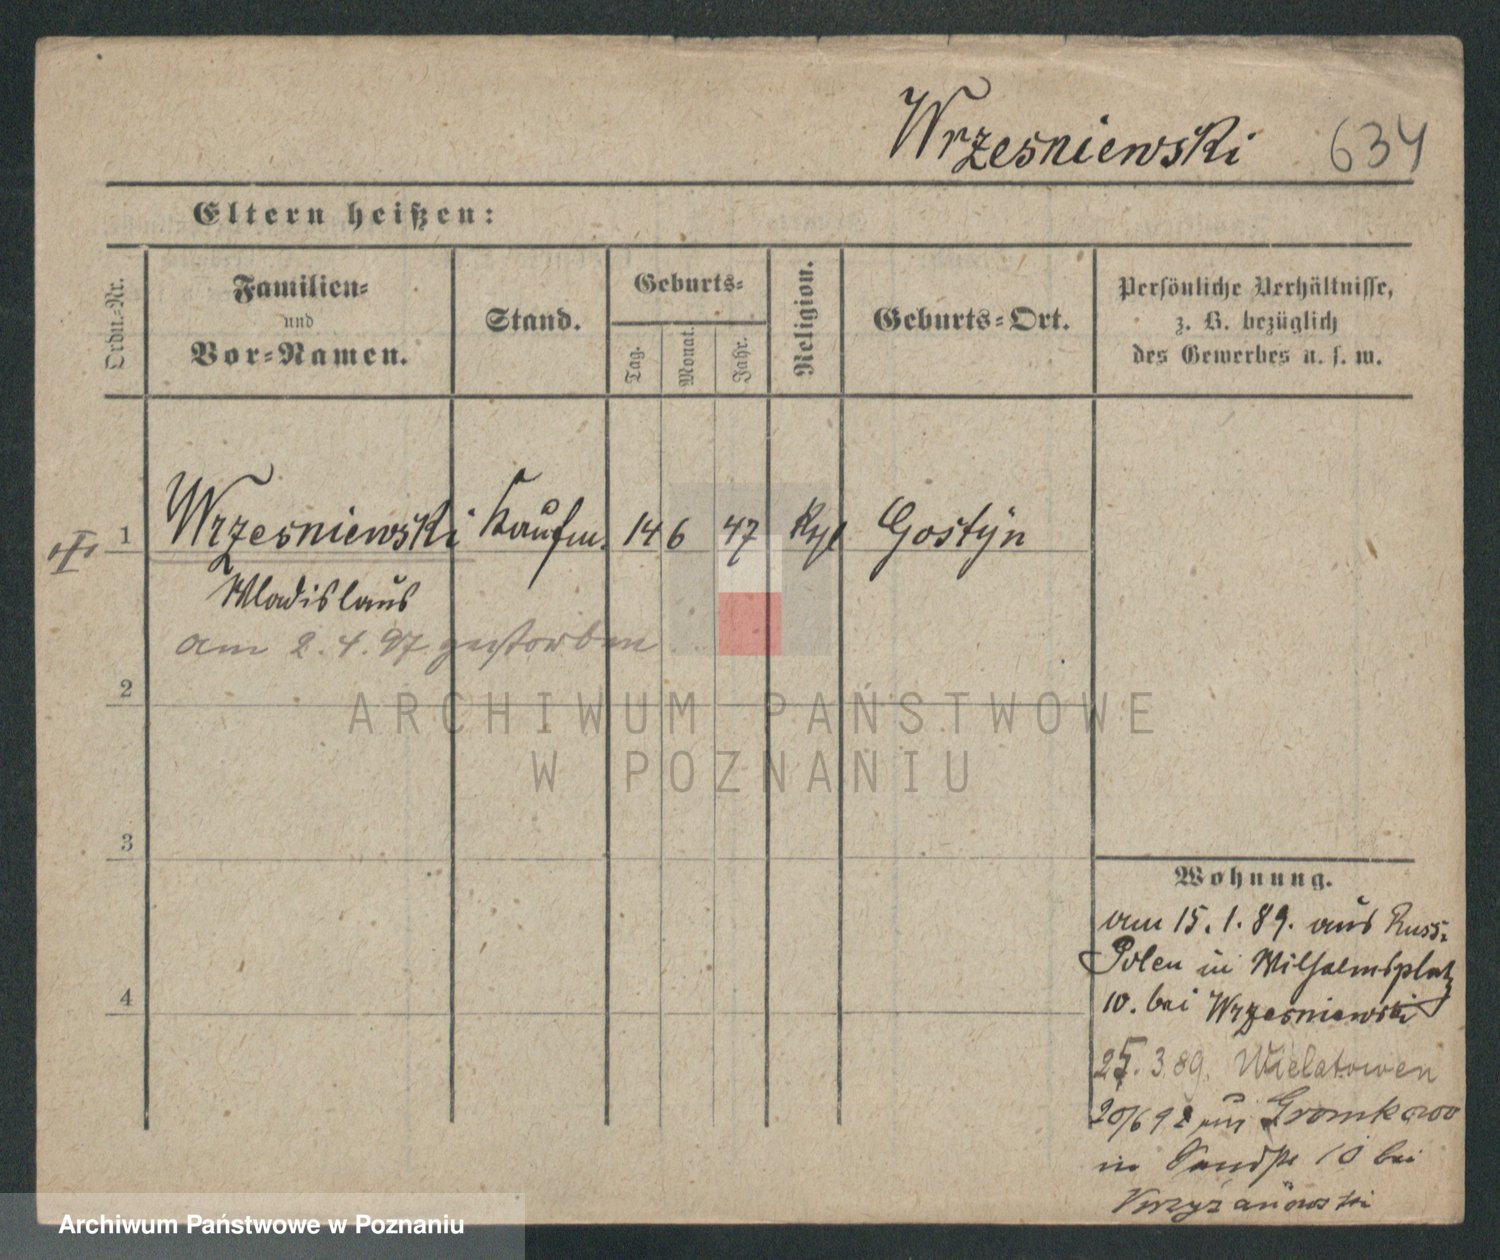 Wrzesniewski 634
Eltern heißen:
Ordn.-Nr.
Familien-
und
Vor-Namen.
Stand.
Geburts-
Tag.
Monat.
Jahr.
Religion.
Geburts-Ort.
Persönliche Verhältnisse,
z. B. bezüglich
des Gewerbes u. s. w.
1 Wrzesniewski Kaufm. 14 6 47 Gostÿn
Wladislaus
am 2.4.97 gestorben
2
3
4
Wohnung.
am 15.1.89. aus Russ.
Polen in Wilhelmsplatz
10. bei Wrzesniewski
25.3.89. Wielatowen
20/6 92 Gromkowo
in 10 bei
ARCHIWUM PAŃSTWOWE
W POZNANIU
Archiwum Państwowe w Poznaniu